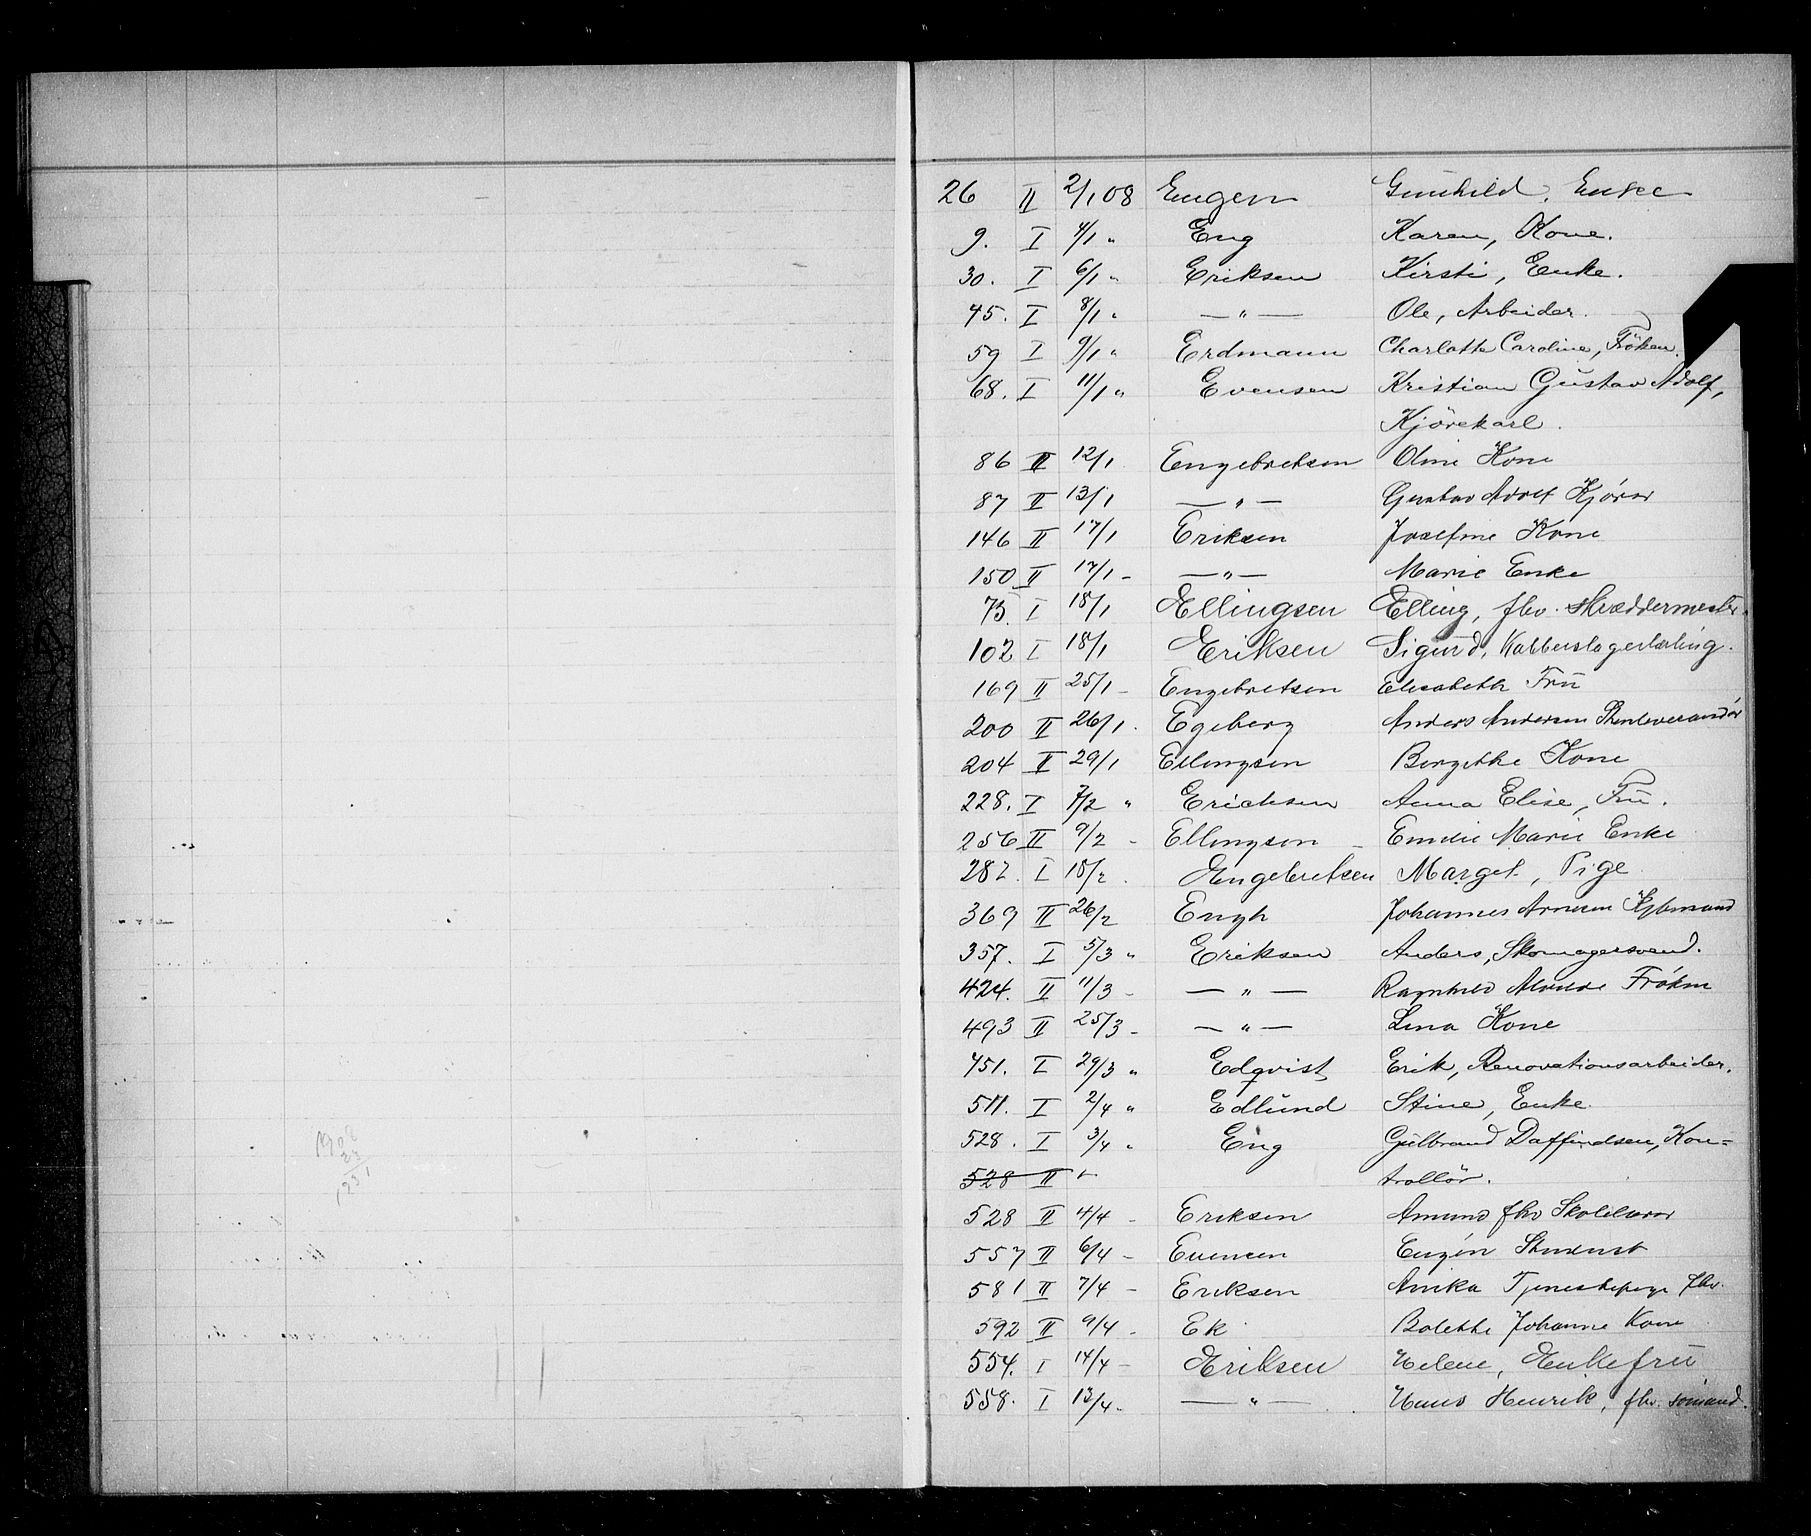 26 II 2/1 08 Engen Gunhild, Enke
9. I 4/1 " Eng Karen, Kone.
30. I 6/1 " Eriksen Kirsti, Enke.
45. I 8/1 " — " — Ole, Arbeider.
59 I 9/1 " Erdmann Charlotte Caroline, Fröken.
68. I 11/1 " Evensen Kristian Gustav Adolf,
Kjörekarl.
86 II 12/1 Engebretsen Oline Kone
87 II 13/1 — " — Gustav Adolf Kjörer
146 II 17/1 Eriksen Josefine Kone
150 II 17/1 - — " — Marie Enke
75. I 18/1 Ellingsen Elling, fhv. skræddermester.
102 I 18/1 Eriksen Sigurd, Kobberslagerlærling.
169 II 25/1 - Engebretsen Elisabeth Frü
200 II 26/1. Egeberg Anders Andersen Stenleverandör
204 II 29/1 Ellingsen Borgethe Kone
228. I 7/2 " Erichsen Anna Elise, Frü.
256 II 9/2 - Ellingsen Emilie Marie Enke
282. I 18/2. Engebretsen Marget, Pige
369 II 26/2 Engh Johannes Arnesen Kjöbmand
357. I 5/3 " Eriksen Anders, Skomagersvend.
424. II 11/3 - — " — Ragnhild Alvilde Fröken
493 II 25/3 - — " — Lina Kone
451. I 29/3 " Edqvist, Erik, Renovationsarbeider.
511. I 2/4 " Edlünd Stine, Enke.
528. I 3/4 " Eng Gulbrand Daffindsen, Kon=
528 II trollör.
528 II 4/4 - Eriksen Amund fhv Skolelærer
557 II 6/4 - Evensen Eugén Student
581 II 7/4 - Eriksen Anika Tjenestepige fhv.
592 II 9/4 - Ek Bolette Johanne Kone
554. I 14/4 - Eriksen Helene, Enkefrü
558. I 13/4 - — " — Hans Henrik, fhv. sömand.
1908
23
1931